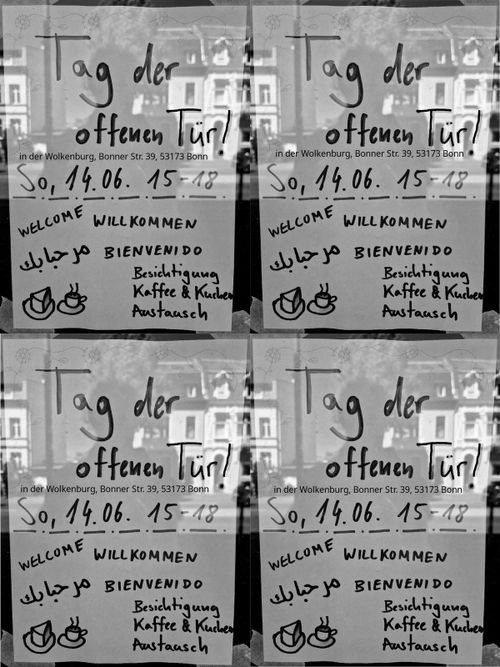 Tag der
offenen Tür!
in der Wolkenburg, Bonner Str. 39, 53173 Bonn
So, 14.06. 15-18
WELCOME WILLKOMMEN
مرحبا بك BIENVENIDO
Besichtigung
Kaffee & Kuchen
Austausch
Tag der
offenen Tür!
in der Wolkenburg, Bonner Str. 39, 53173 Bonn
So, 14.06. 15-18
WELCOME WILLKOMMEN
مرحبا بك BIENVENIDO
Besichtigung
Kaffee & Kuchen
Austausch
Tag der
offenen Tür!
in der Wolkenburg, Bonner Str. 39, 53173 Bonn
So, 14.06. 15-18
WELCOME WILLKOMMEN
مرحبا بك BIENVENIDO
Besichtigung
Kaffee & Kuchen
Austausch
Tag der
offenen Tür!
in der Wolkenburg, Bonner Str. 39, 53173 Bonn
So, 14.06. 15-18
WELCOME WILLKOMMEN
مرحبا بك BIENVENIDO
Besichtigung
Kaffee & Kuchen
Austausch